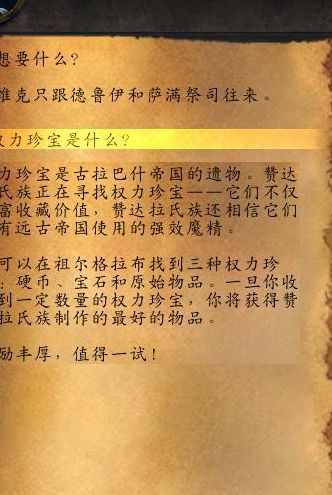 想要什么?
维克只跟德鲁伊和萨满祭司往来。
权力珍宝是什么?
力珍宝是古拉巴什帝国的遗物。赞达
氏族正在寻找权力珍宝——它们不仅
富收藏价值，赞达拉氏族还相信它们
有远古帝国使用的强效魔精。
可以在祖尔格拉布找到三种权力珍
：硬币、宝石和原始物品。一旦你收
到一定数量的权力珍宝，你将获得赞
拉氏族制作的最好的物品。
励丰厚，值得一试!